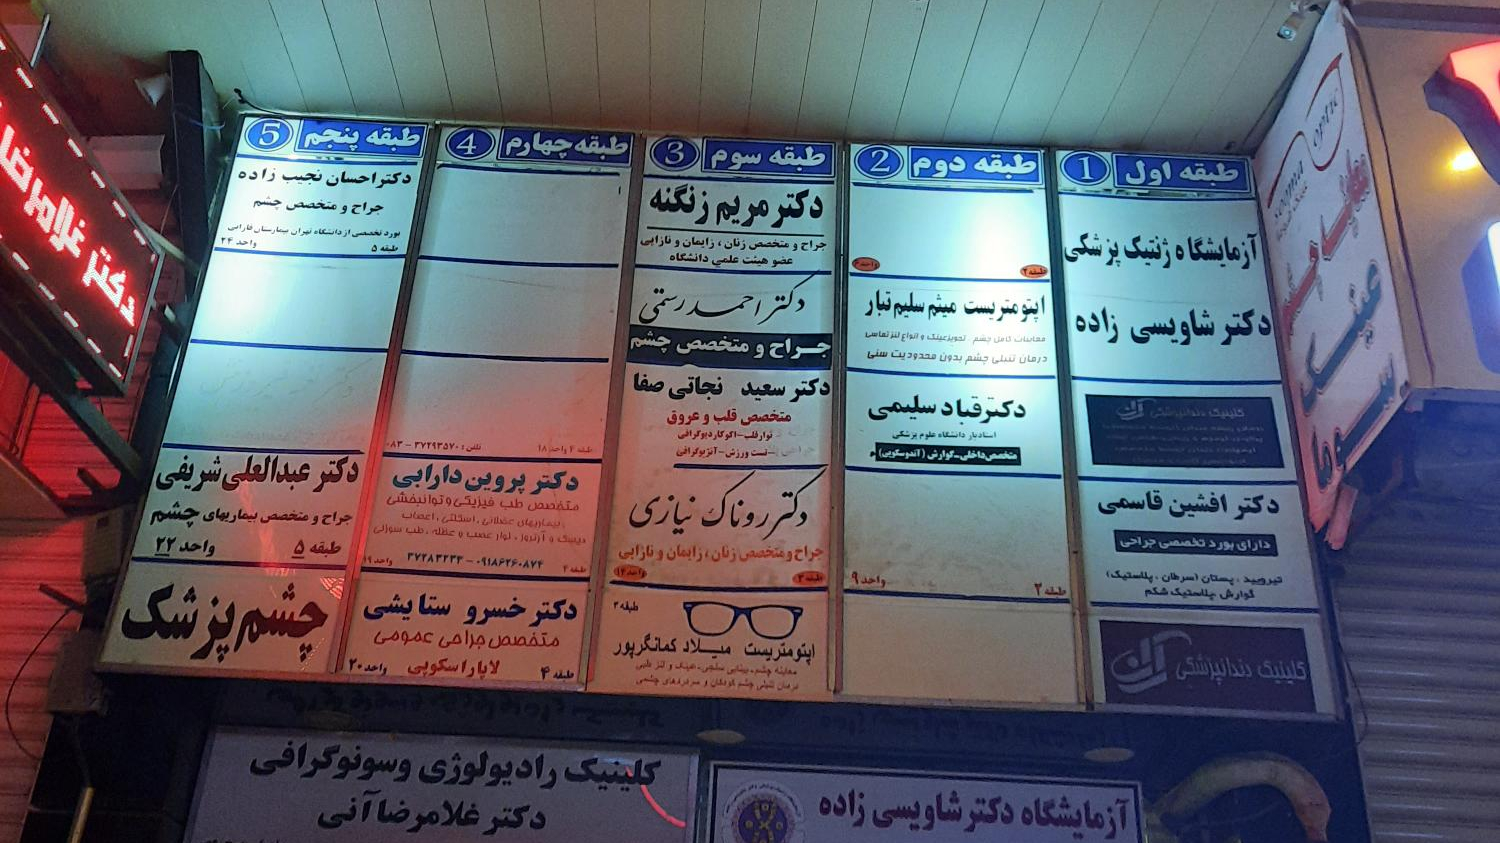 طبقه اول 1
آزمایشگاه ژنتیک پزشکی
دکتر شاویسی زاده
کلینیک دندانپزشکی
دکتر افشین قاسمی
دارای بورد تخصصی جراحی
تیروئید ، پستان (سرطان ، پلاستیک)
گوارش ،پلاستیک شکم
کلینیک دندانپزشکی
طبقه دوم 2
طبقه ۲
اپتومتریست میثم سلیم تبار
معاینات کامل چشم ، تجویز عینک و انواع لنز تماسی
درمان تنبلی چشم بدون محدودیت سنی
دکتر قباد سلیمی
استادیار دانشگاه علوم پزشکی
متخصص داخلی-گوارش (آندوسکوپی)
طبقه ۲ واحد ۹
طبقه سوم 3
دکتر مریم زنگنه
جراح و متخصص زنان ، زایمان و نازایی
عضو هیئت علمی دانشگاه
دکتر احمد رستمی
جراح و متخصص چشم
دکتر سعید نجاتی صفا
متخصص قلب و عروق
نوار قلب-اکوکاردیوگرافی
-تست ورزش-آنژیوگرافی
دکتر روناک نیازی
جراح و متخصص زنان ، زایمان و نازایی
طبقه ۳ واحد ۱۴
طبقه ۳
اپتومتریست میلاد کمانگرپور
معاینه چشم-بینایی سنجی-عینک و لنز طبی
درمان تنبلی چشم کودکان و سردردهای چشمی
طبقه چهارم 4
طبقه ۴ واحد ۱۸ تلفن : ۳۷۲۹۳۵۷۰ - ۰۸۳
دکتر پروین دارابی
متخصص طب فیزیکی و توانبخشی
بیماریهای عضلانی ، اسکلتی ، اعصاب
دیسک و آرتروز ، نوار عصب و عضله ، طب سوزنی
۰۹۱۸۶۲۶۰۸۷۴ - ۳۷۲۸۳۲۳۳
طبقه ۴ واحد ۱۹
دکتر خسرو ستایشی
متخصص جراحی عمومی
لاپاراسکوپی
طبقه ۴ واحد ۲۰
طبقه پنجم 5
دکتر احسان نجیب زاده
جراح و متخصص چشم
بورد تخصصی از دانشگاه تهران بیمارستان فارابی
طبقه ۵ واحد ۲۴
دکتر عبدالعلی شریفی
جراح و متخصص بیماریهای چشم
طبقه ۵ واحد ۲۲
چشم پزشک
کلینیک رادیولوژی وسونوگرافی
دکتر غلامرضا آنی
آزمایشگاه دکتر شاویسی زاده
دکتر غلامرضا
optic
عینک
سوما